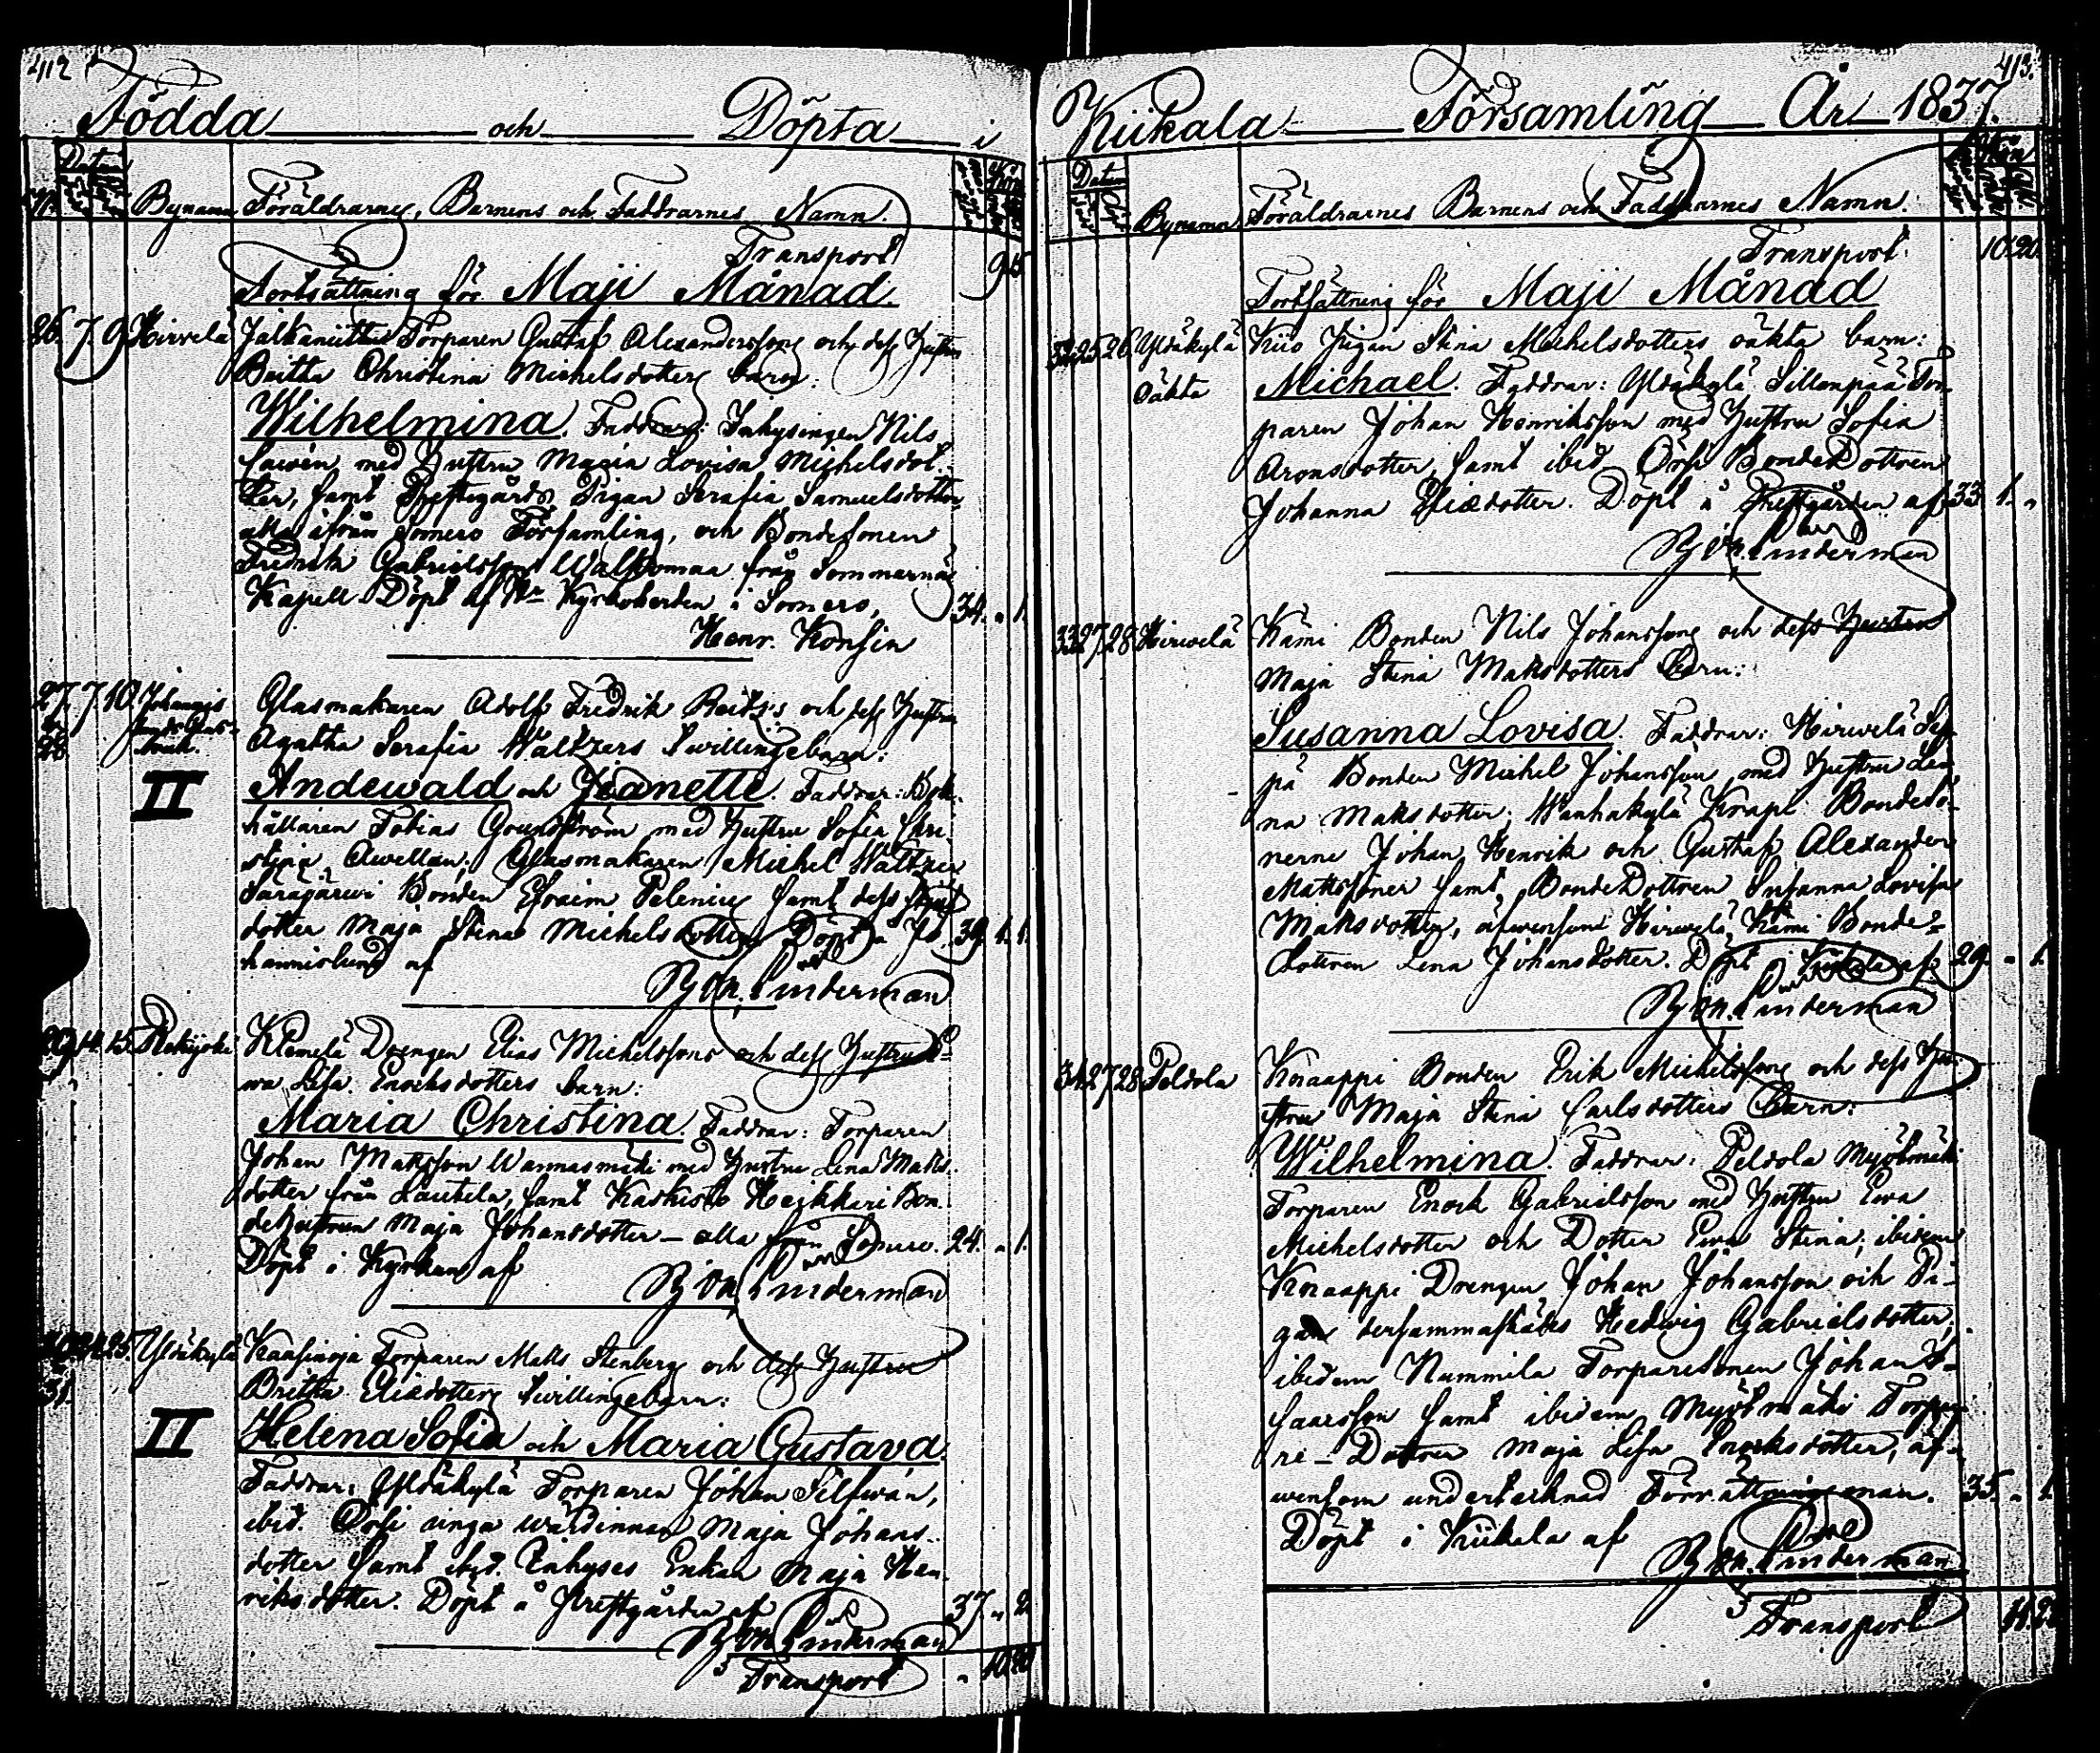 412
Födda och Döpta i
Datum
No Bynamn Föräldrarnes, Barnens och Faddrarnes Namn.
Transport 9 15
Fortsättning för Maji Månad.
26. 7. 9. Hirvelä Torparen Gustaf Alexanderssons och dess Hustru
Britta Christina Michelsdotters barn:
Wilhelmina. Faddrar: Inhysingen Nils
med Hustru Maria Lovisa Michelsdot-
ter, samt Prestgårds Pigan Serafia Samuelsdotter
alla ifrån Somero Församling, och Bondesonen
Fredrik Gabrielsson från Sommarnäs
Kapell. Döpt af Hr Kyrkoherden i Somero, 34. „ 1.
Henr. Konsin
27. 7. 10. Johannis
28 lunds Glas-
bruk.
Glasmakaren Adolf Fredrik Reitz's och dess Hustru
Agatha Serafia Waltzers Twillingebarn:
II Andewald och Jeanette. Faddrar: Bok-
hållaren Tobias Grundström med Hustru Sofia Chri
stina Awellan; Glasmakaren Michel Waltzer
Saragärwi Bonden Efraim Pelenius samt dess
dotter Maja Stina Michelsdotter Döpt å Jo- 39. 1. 1.
hannislund af
Linderman
29. 14. 15. Rekijoki Klemelä Drengen Elias Michelssons och dess Hustru E-
wa Lisa Enoksdotters barn:
Maria Christina. Faddrar: Torparen
Johan Matsson Wannasmäki med Hustru Lena Mats-
dotter från Lautela, samt Kaskisto Heikkari Bon-
dehustrun Maja Johansdotter – alla från 24. „ 1.
Döpt i Kyrkan af
Linderman
30 24. 25. Yldäkylä Torparen Matts Stenbergs och dess Hustru
31. Britta Eliædotters Twillingebarn:
II Helena Sofia och Maria Gustava.
Faddrar: Yldäkylä Torparen Johan Silfwán,
ibid. Örsi unga wärdinnan Maja Johans-
dotter samt ibid. Inhyses Enkan Maja Hen-
riksdotter. Döpt å Prestgården af 37. „ 2
Lindermau
Transport „ 10. 20
413.
Kiikala Församling År 1837.
Datum
Bynamn Föräldrarnes Barnens och Faddrarnes Namn.
Transport. 10. 20.
Fortsättning för Maji Månad
32. 25 26 Yldäkylä Kiio Pigan Stina Michelsdotters oäkta barn:
oäkta Michael. Faddrar: Yldäkylä Sillanpää Tor-
paren Johan Henriksson med Hustru Sofia
Aronsdotter, samt ibid. Örsi BondeDottren
Johanna Eliædotter. Döpt å Prestgården af 33 1. „
Linderman
33 27 28 Hirwelä Kämi Bonden Nils Johanssons och dess Hustru
Maja Stina Matsdotters Barn:
Susanna Lovisa. Faddrar: Hirwelä Sep-
pä Bonden Michel Johansson med Hustru Le-
na Matsdotter; Wanhakylä Krapi Bondesö-
nerne Johan Henrik och Gustaf Alexander
Matssöner samt BondeDottren Susanna Lovisa
Matsdotter, äfwensom Hirwelä Kämi Bonde-
Dottren Lena Johansdotter. Döpt i Kiikala af 29. „ 1.
Linderman
34. 27 28 Peldola Knaappi Bonden Erik Michelssons och dess Hu-
stru Maja Stina Carlsdotters Barn:
Wilhelmina. Faddrar: Peldola Myöhmäki
Torparen Enok Gabrielsson med Hustru Ewa
Michelsdotter och Dotter Ewa Stina; ibidem
Knaappi Drengen Johan Johansson och Pi-
gan dersammastädes Hedwig Gabrielsdotter,
ibidem Nummila Torparesonen Johan I-
saacsson samt ibidem Myöhmäki Torpa-
re-Dottren Maja Lisa Enoksdotter, äf-
wensom undertecknad Förrättningsman. 35. „ 1.
Döpt i Kiikala af
Linderman
Transport 11. 2